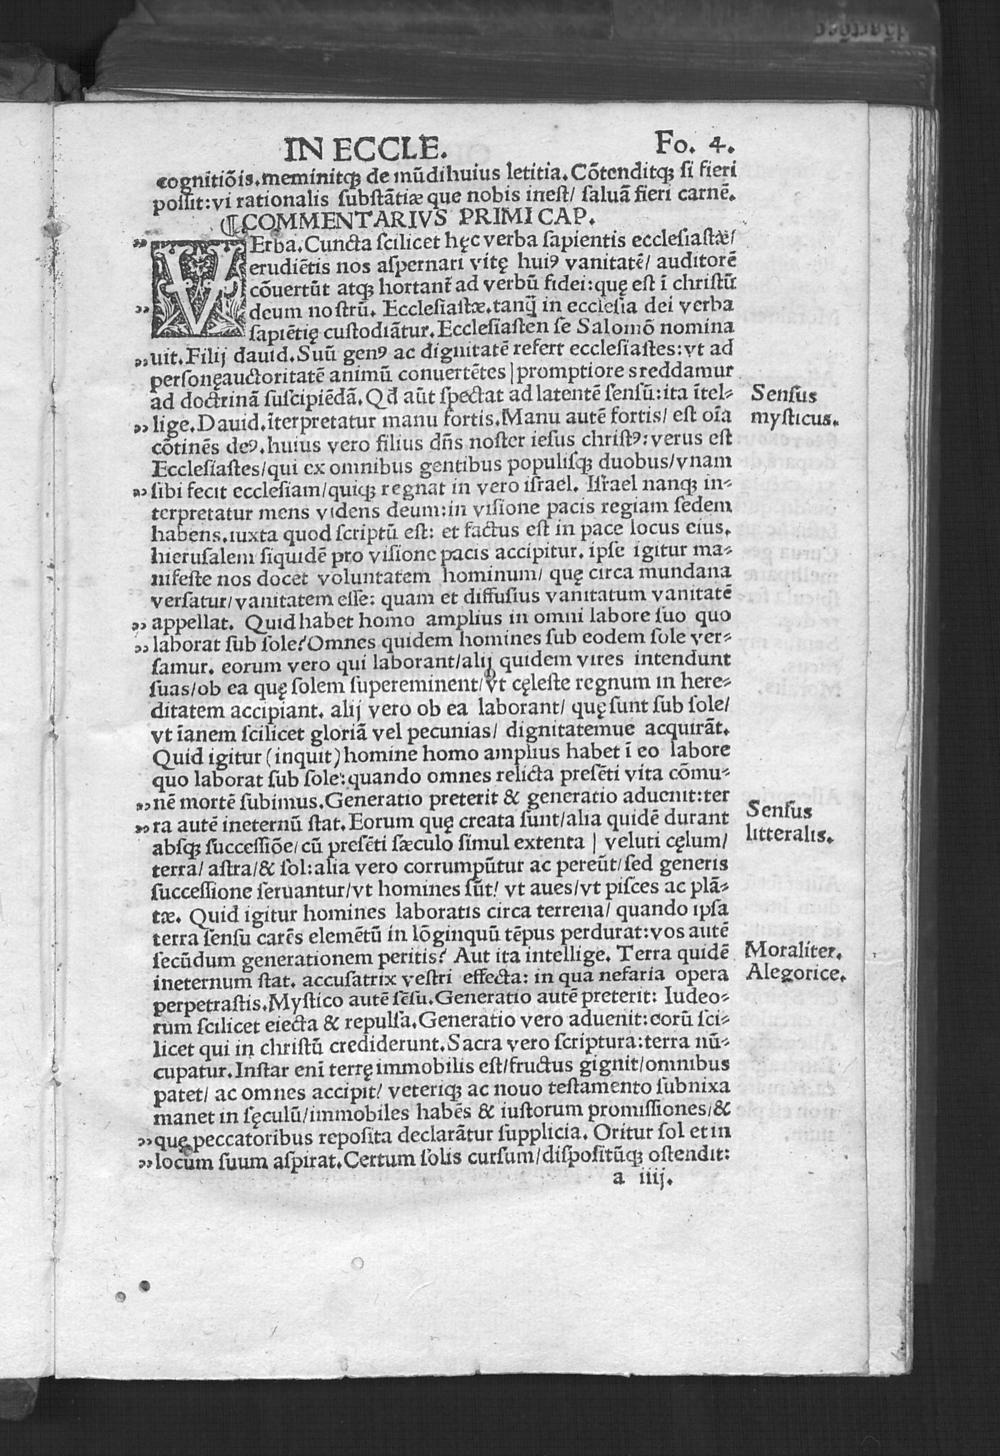 IN ECCLE. Fo. 4.
cognitiõis. meminitq̃ de mũdihuius letitia. Cõtenditq̃ si fieri
possit: vi rationalis substãtiæ que nobis inest/ saluã fieri carnẽ.
¶COMMENTARIVS PRIMI CAP.
VErba. Cuncta scilicet hęc verba sapientis ecclesiastæ/
erudiẽtis nos aspernari vitę huiꝰ vanitatẽ/ auditorẽ
cõuertũt atq̃ hortant᷑ ad verbũ fidei: quę est ĩ christũ
deum nostrũ. Ecclesiastæ. tanq̃ in ecclesia dei verba
sapiẽtię custodiãtur. Ecclesiasten se Salomõ nomina
uit. Filij dauid. Suũ genꝰ ac dignitatẽ refert ecclesiastes: vt ad
personęauctoritatẽ animũ conuertẽtes | promptiore sreddamur
ad doctrinã suscipiẽdã. Qd̃ aũt spectat ad latentẽ sensũ: ita ĩtel⸗
lige. Dauid. ĩterpretatur manu fortis. Manu autẽ fortis/ est oĩa
cõtinẽs deꝰ. huius vero filius dñs noster iesus christꝰ: verus est
Ecclesiastes/ qui ex omnibus gentibus populisq̃ duobus/ vnam
sibi fecit ecclesiam/ quiq̃ regnat in vero israel. Israel nanq̃ in⸗
terpretatur mens videns deum: in visione pacis regiam sedem
habens. iuxta quod scriptũ est: et factus est in pace locus eius.
hierusalem siquidẽ pro visione pacis accipitur. ipse igitur ma⸗
nifeste nos docet voluntatem hominum/ quę circa mundana
versatur/ vanitatem esse: quam et diffusius vanitatum vanitatẽ
appellat. Quid habet homo amplius in omni labore suo quo
laborat sub sole? Omnes quidem homines sub eodem sole ver⸗
samur. eorum vero qui laborant/ alij quidem vires intendunt
suas/ ob ea quę solem supereminent/ vt cęleste regnum in here⸗
ditatem accipiant. alij vero ob ea laborant/ quę sunt sub sole/
vt ĩanem scilicet gloriã vel pecunias/ dignitatemue acquirãt.
Quid igitur (inquit) homine homo amplius habet ĩ eo labore
quo laborat sub sole: quando omnes relicta presẽti vita cõmu⸗
nẽ mortẽ subimus. Generatio preterit & generatio aduenit: ter
ra autẽ ineternũ stat. Eorum quę creata sunt/ alia quidẽ durant
absq̃ successiõe/ cũ presẽti sæculo simul extenta | veluti cęlum/
terra/ astra/ & sol: alia vero corrumpũtur ac pereũt/ sed generis
successione seruantur/ vt homines sũt/ vt aues/ vt pisces ac plã⸗
tæ. Quid igitur homines laboratis circa terrena/ quando ipsa
terra sensu carẽs elemẽtũ in lõginquũ tẽpus perdurat: vos autẽ
secũdum generationem peritis? Aut ita intellige. Terra quidẽ
ineternum stat. accusatrix vestri effecta: in qua nefaria opera
perpetrastis. Mystico autẽ sẽsu. Generatio autẽ preterit: Iudeo⸗
rum scilicet eiecta & repulsa. Generatio vero aduenit: eorũ sci⸗
licet qui in christũ crediderunt. Sacra vero scriptura: terra nũ⸗
cupatur. Instar eni terrę immobilis est/ fructus gignit/ omnibus
patet/ ac omnes accipit/ veteriq̃ ac nouo testamento subnixa
manet in sęculũ/ immobiles habẽs & iustorum promissiones/ &
quę peccatoribus reposita declarãtur supplicia. Oritur sol et in
locum suum aspirat. Certum solis cursum/ dispositũq̃ ostendit:
a iiij.
Sensus
mysticus.
Sensus
litteralis.
Moraliter.
Alegorice.